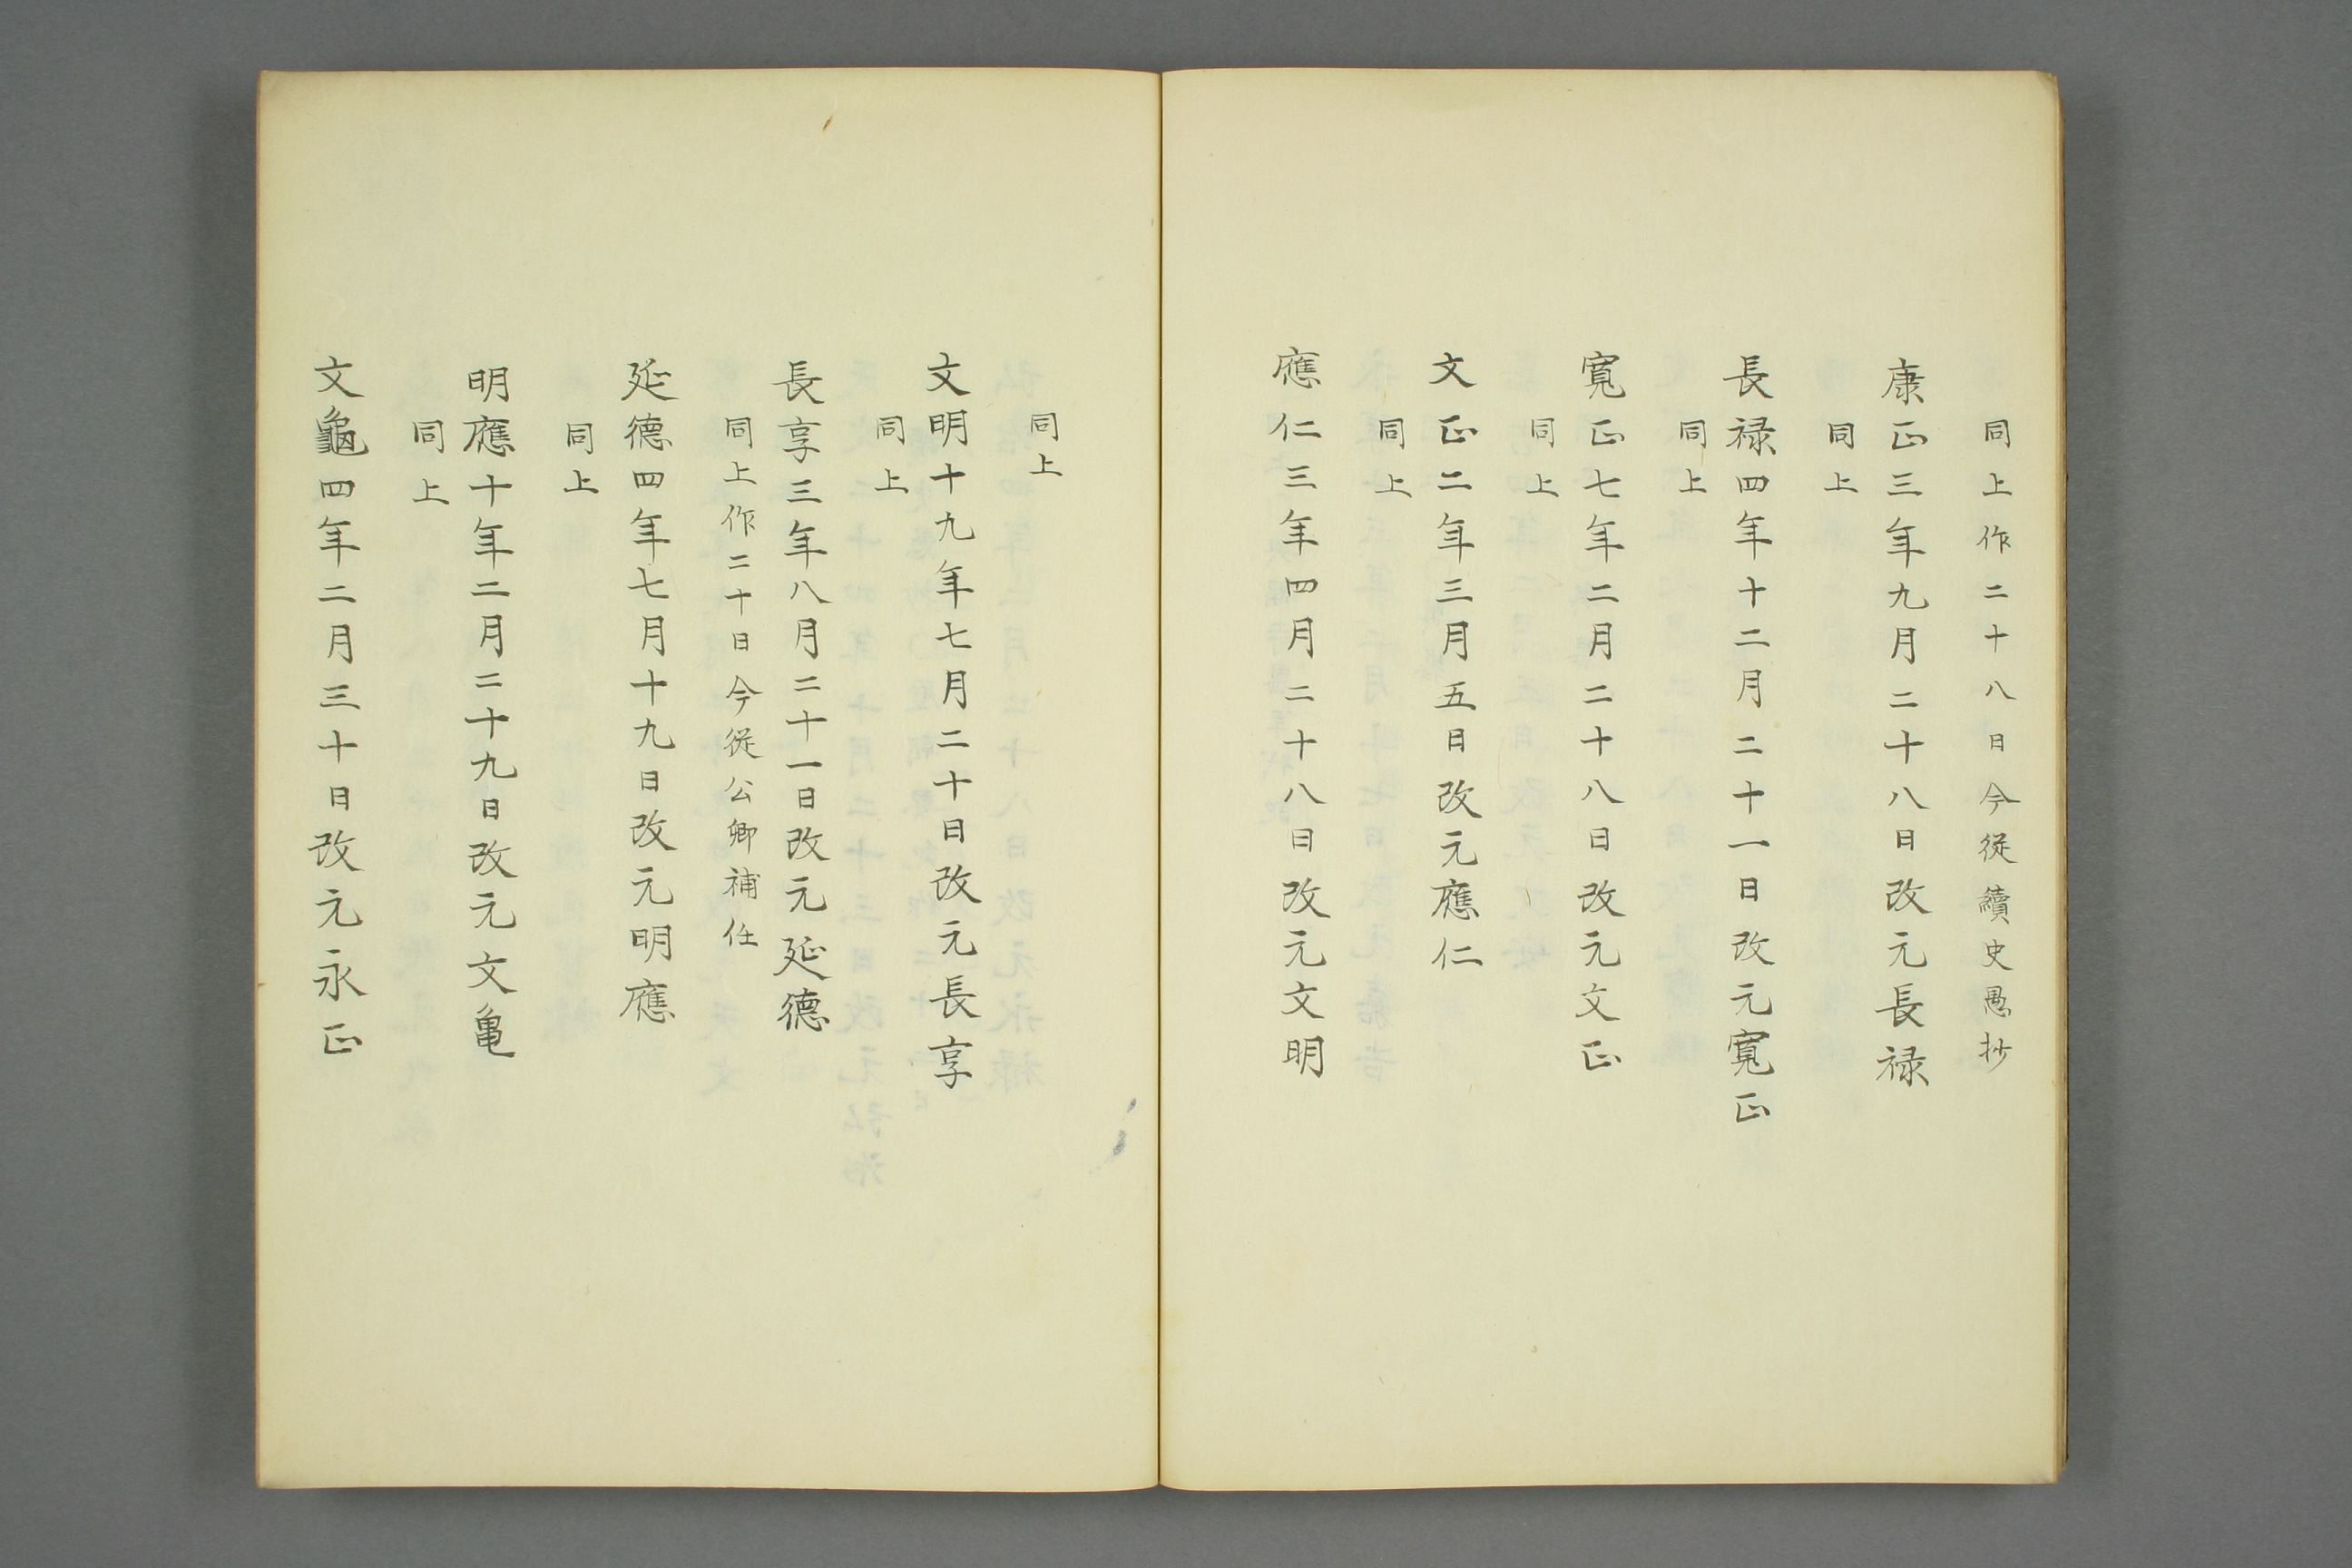 同上作二十八日今従續史愚抄
康正三年九月二十八日改元長禄
同上
長禄四年十二月二十一日改元寛正
同上
寛正七年二月二十八日改元文正
同上
文正二年三月五日改元應仁
同上
應仁三年四月二十八日改元文明
同上
文明十九年七月二十日改元長享
同上
長享三年八月二十一日改元延德
同上作二十日今従公卿補任
延德四年七月十九日改元明應
同上
明應十年二月二十九日改元文亀
同上
文龜四年二月三十日改元永正